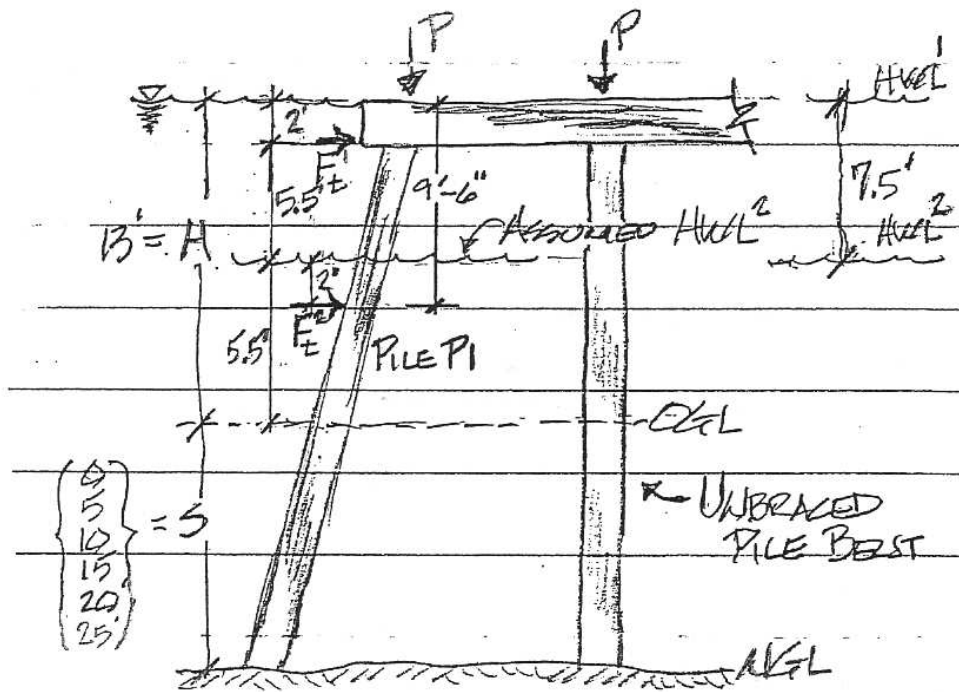 P
P
HWL¹
2'
F_t¹
5.5'
9'-6"
7.5'
13' = H
ASSUMED HWL²
HWL²
2'
F_t²
5.5'
PILE P1
OGL
0
5
10
15
20
25'
= S
UNBRACED
PILE BENT
NGL